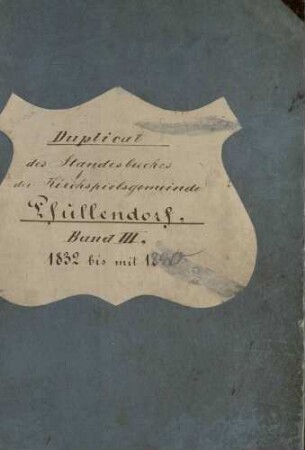 Duplicat
des Standesbuches
der Kirchspielsgemeinde
Pfullendorf.
Band III.
1832 bis mit 1840